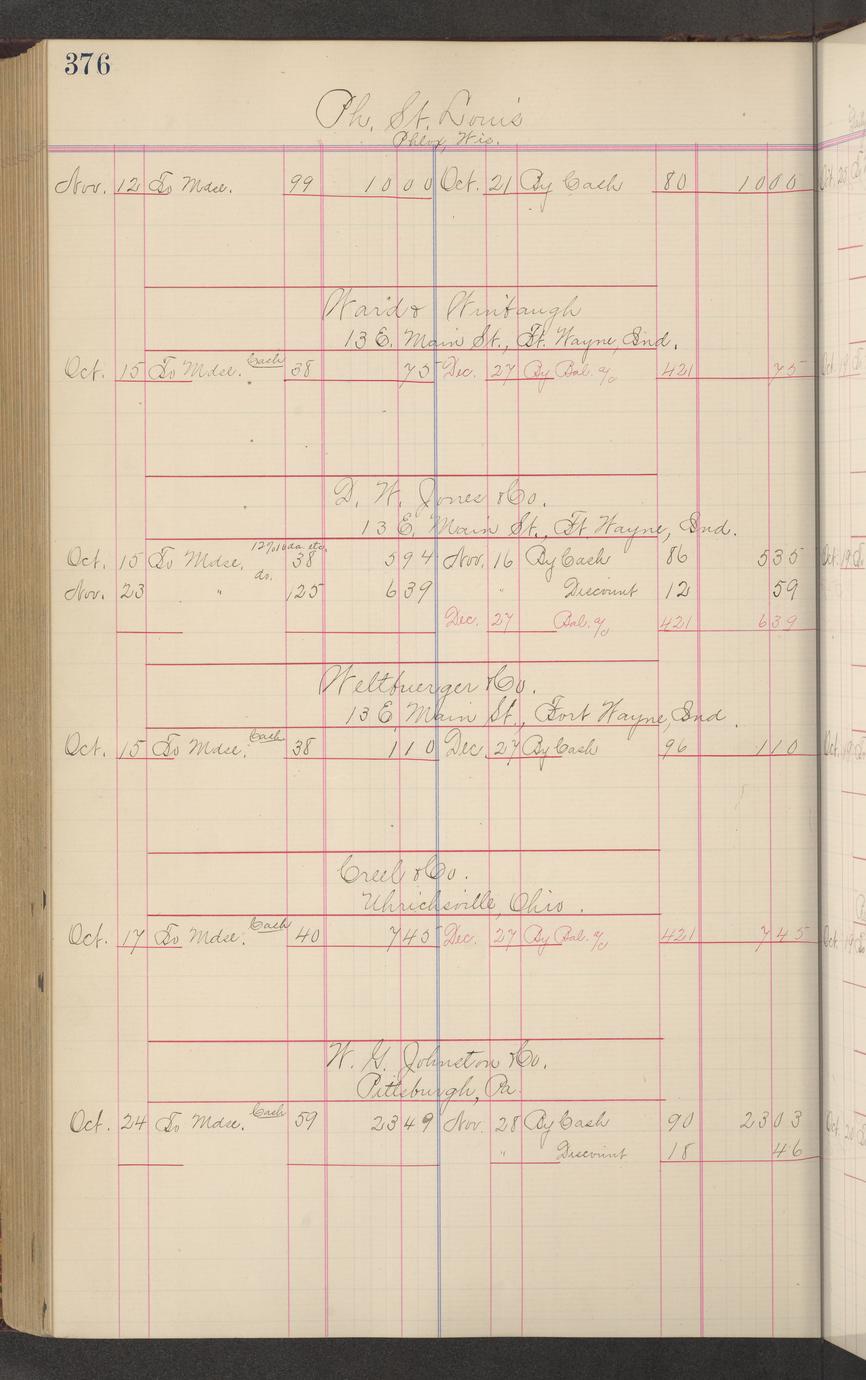 376
Ph. St. Louis
Phlox, Wis.
Nov. 12 To Mdse. 99 1000 Oct. 21 By Cash 80 1000
Ward &
13 E. Main St., Ft. Wayne, Ind.
Oct. 15 To Mdse. Cash 38 75 Dec. 27 By Bal. a/c 421 75
D. W. Jones & Co.
13 E. Main St., Ft Wayne, Ind.
Oct. 15 To Mdse. 38 594 Nov. 16 By Cash 86 535
Nov. 23 " do. 125 639 " Discount 12 59
Dec. 27 Bal. a/c 421 639
Weltbuerger & Co.
13 E Main St., Fort Wayne, Ind.
Oct. 15 To Mdse. Cash 38 110 Dec 27 By Cash 96 110
Creel & Co.
Uhrichsville, Ohio.
Oct. 17 To Mdse. Cash 40 745 Dec. 27 By Bal. a/c 421 745
W. G. Johnston & Co.
Pittsburgh, Pa.
Oct. 24 To Mdse. Cash 59 2349 Nov. 28 By Cash 90 2303
" Discount 18 46